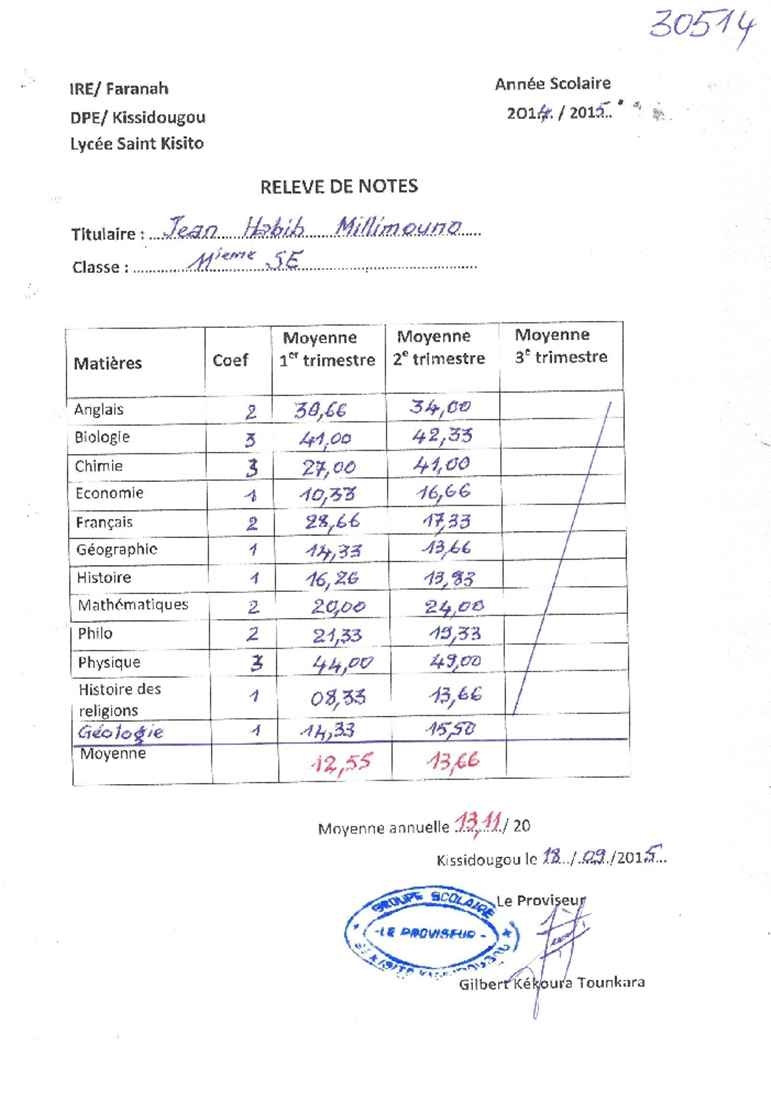 30514
IRE/ Faranah
Année Scolaire
DPE/ Kissidougou
2014. / 2015..
Lycée Saint Kisito
RELEVE DE NOTES
Titulaire : ....Jean Habib Millimouno.....
Classe : ...............11ieme SE...............
Matières Coef Moyenne 1er trimestre Moyenne 2e trimestre Moyenne 3e trimestre
Anglais 2 30,66 34,00
Biologie 3 41,00 42,33
Chimie 3 27,00 41,00
Economie 1 10,33 16,66
Français 2 28,66 17,33
Géographie 1 14,33 13,66
Histoire 1 16,26 13,83
Mathématiques 2 20,00 24,00
Philo 2 21,33 19,33
Physique 3 44,00 49,00
Histoire des religions 1 08,33 13,66
Géologie 1 14,33 15,50
Moyenne 12,55 13,66
Moyenne annuelle 13,11/ 20
Kissidougou le 18../.09./2015...
Le Proviseur
GROUPE SCOLAIRE
-LE PROVISEUR -
ST KISITO KISSIDOUGOU
Gilbert Kékoura Tounkara